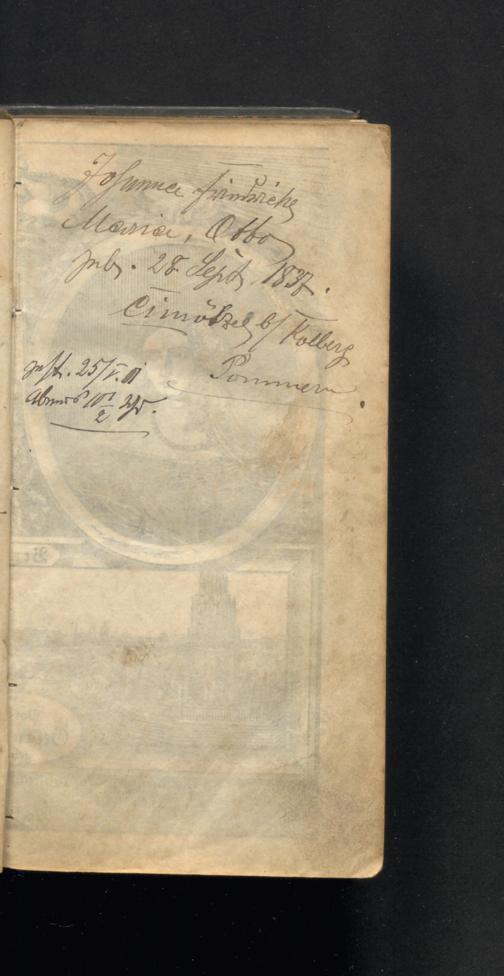 Johanna Friedericke
Maria, Otto
geb. 28. Sept. 1837.
Cimötzel b/ Kolberg
Pommern.
gest. 25/V. 11
Abends 10 1/2 Uhr.